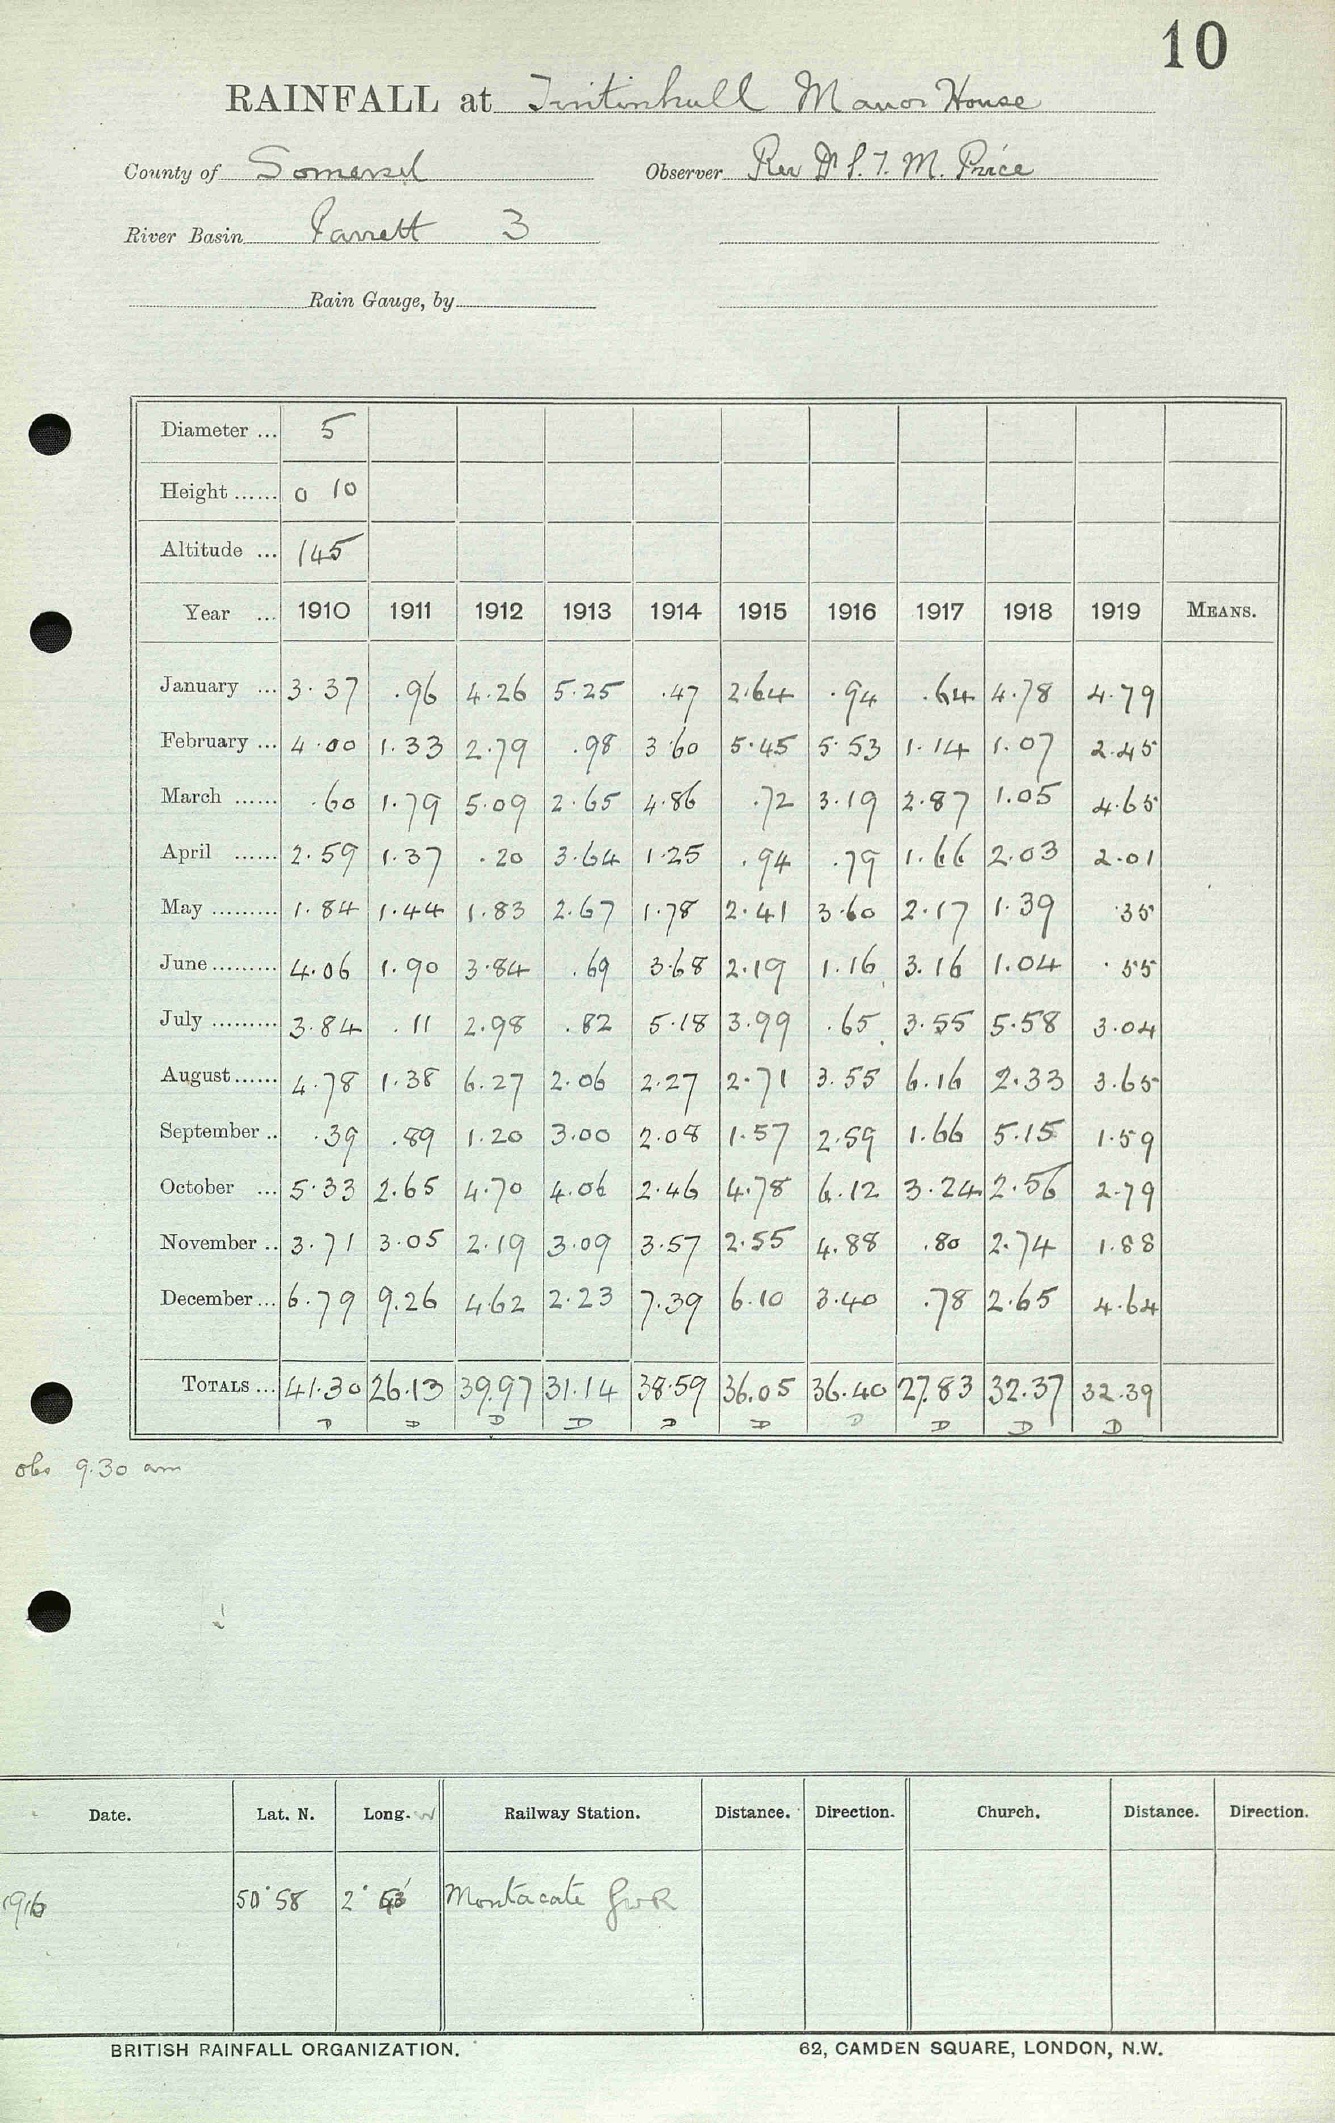 10
RAINFALL at Tintinhull Manor House
County of Somerset Observer Rev Dr S. T. M. Price
River Basin Parrett 3
Rain Gauge, by
Diameter ... 5
Height ...... 0 10
Altitude ... 145
Year ... 1910 1911 1912 1913 1914 1915 1916 1917 1918 1919 MEANS.
January ... 3.37 .96 4.26 5.25 .47 2.64 .94 .64 4.78 4.79
February ... 4.00 1.33 2.79 .98 3.60 5.45 5.53 1.14 1.07 2.45
March ...... .60 1.79 5.09 2.65 4.86 .72 3.19 2.87 1.05 4.65
April ...... 2.59 1.37 .20 3.64 1.25 .94 .79 1.66 2.03 2.01
May ......... 1.84 1.44 1.83 2.67 1.78 2.41 3.60 2.17 1.39 .35
June ......... 4.06 1.90 3.84 .69 3.68 2.19 1.16 3.16 1.04 .55
July ......... 3.84 .11 2.98 .82 5.18 3.99 .65 3.55 5.58 3.04
August ...... 4.78 1.38 6.27 2.06 2.27 2.71 3.55 6.16 2.33 3.65
September .. .39 .89 1.20 3.00 2.08 1.57 2.59 1.66 5.15 1.59
October ... 5.33 2.65 4.70 4.06 2.46 4.78 6.12 3.24 2.56 2.79
November .. 3.71 3.05 2.19 3.09 3.57 2.55 4.88 .80 2.74 1.88
December ... 6.79 9.26 4.62 2.23 7.39 6.10 3.40 .78 2.65 4.64
TOTALS ... 41.30 26.13 39.97 31.14 38.59 36.05 36.40 27.83 32.37 32.39
D D D D D D D D D D
obs 9.30 am
Date. Lat. N. Long. W Railway Station. Distance. Direction. Church. Distance. Direction.
1916 50° 58 2° Montacute GWR
BRITISH RAINFALL ORGANIZATION. 62, CAMDEN SQUARE, LONDON, N.W.